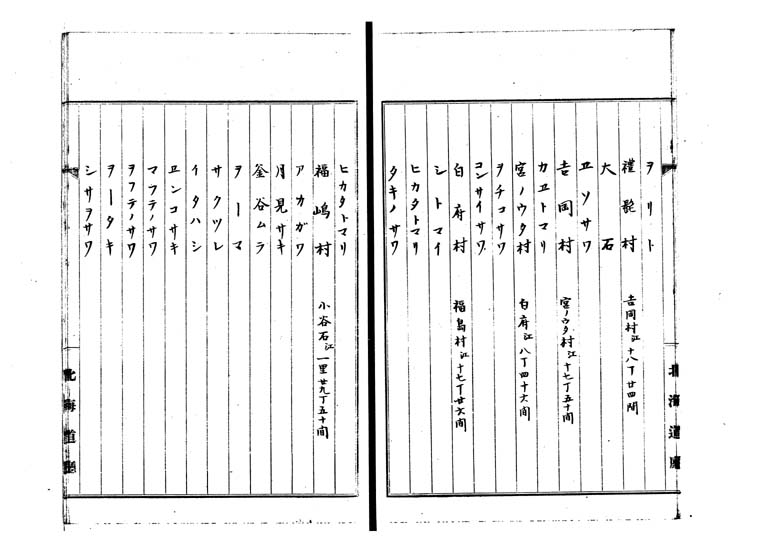 ヲリト
禮髭村 吉岡村江十八丁廿四間
大石
ヱソサワ
吉岡村 宮ノウタ村江十七丁五十間
カヱトマリ
宮ノウタ村 白府江八丁四十六間
ヲチコサワ
コンサイサワ
白府村 福島村江十七丁廿六間
シトマイ
ヒカタトマリ
タキノサワ
北海道廳
ヒカタトマリ
福嶋村 小谷石江一里廿九丁五十間
アカガワ
月見サキ
釜谷ムラ
ヲーマ
サクツレ
イタハシ
ヱンコサキ
マツテノサワ
ヲフテノサワ
ヲータキ
シサヲサワ
北海道廳